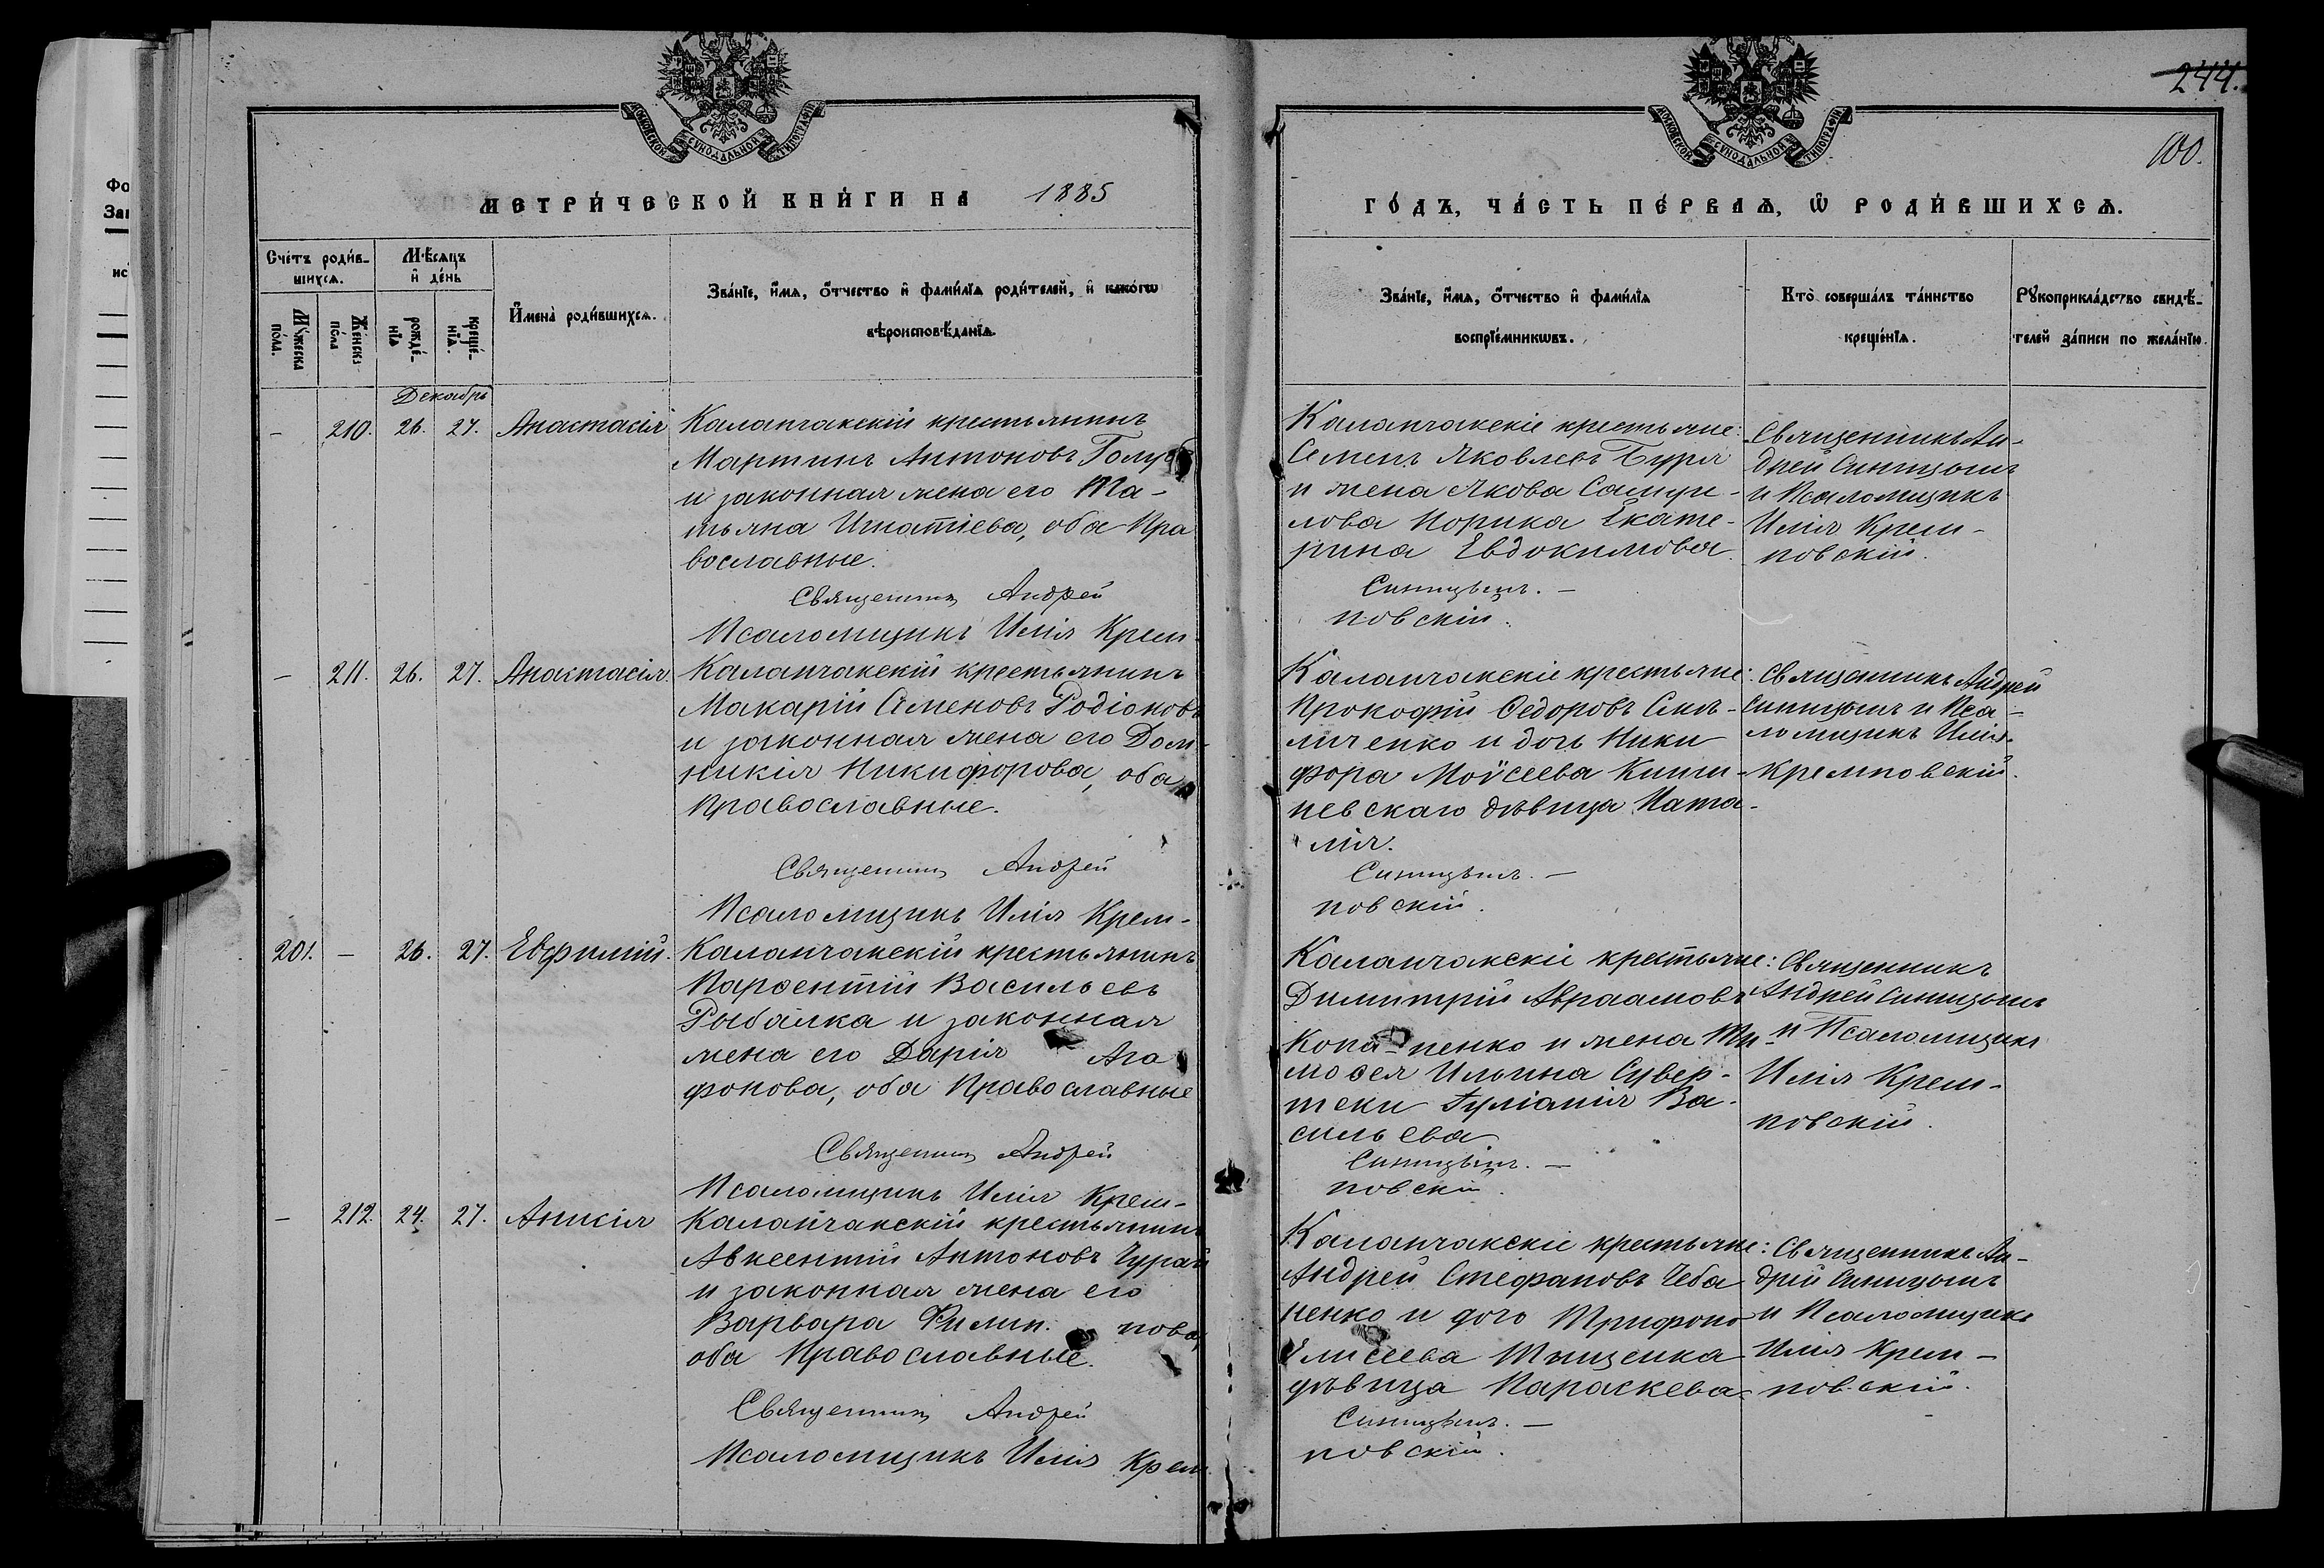 244.
100.
МОСКОВСКОЙ СѴНОДАЛЬНОЙ ТИПОГРАФІИ
МОСКОВСКОЙ СѴНОДАЛЬНОЙ ТИПОГРАФІИ
МЕТРИ́ЧЕСКОЙ КНИ́ГИ НА 1885
ГО́ДЪ, ЧА́СТЬ ПЕ́РВАѦ, Ѡ РОДИ́ВШИХСѦ.
Сче́тъ роди́в-
шихсѧ.
Мѣ́сѧцъ
и҆ де́нь
Мꙋ́жеска
по́ла.
Же́нска
по́ла
рожде́-
нїѧ
креще́-
нїѧ.
И҆мена̀ роди́вшихсѧ.
Зва́нїе, и҆́мѧ, ѻ҆́тчество и҆ фами́лїѧ роди́телей, и҆ како́гѡ
вѣроисповѣ́данїѧ.
Зва́нїе, и҆́мѧ, ѻ҆́тчество и҆ фами́лїѧ
воспрїе́мникѡвъ.
Кто̀ соверша́лъ та́инство
креще́нїѧ.
Рꙋкоприкла́дство свидѣ́-
телей за́писи по жела́нїю.
Декабрь
- 210. 26. 27. Анастасія
Каланчакскій крестьянинъ
Мартинъ Антоновъ Голуб
и законная жена его Та-
тьяна Игнатіева, оба Пра
вославные.
Священникъ Андрей
Псаломщикъ Илія Крем-
Каланчакскіе крестьяне:
Семенъ Яковлевъ Буря
и жена Якова Самуи-
лова Норика Екате-
рина Евдокимова
Синицынъ. -
повскій.
Священникъ Ан-
дрей Синицынъ
и Псаломщикъ
Илія Крем-
повскій.
- 211. 26. 27. Анастасія.
Каланчакскій крестьянинъ
Макарій Семеновъ Родіоновъ
и законная жена его Дом-
никія Никифорова, оба
православные.
Священникъ Андрей
Псаломщикъ Илія Крем-
Каланчакскіе крестьяне:
Прокофій Ѳедоровъ
и дочь Ники
фора Моѵсеева Киши-
невскаго дѣвица Ната-
лія.
Синицынъ. -
повскій.
Священникъ Андрей
Синицынъ и Пса-
ломщикъ Илія
Кремповскій.
201. - 26. 27. Евфимій.
Каланчакскій крестьянинъ
Парѳентій Васильевъ
Рыбалка и законная
жена его Дарія Ага
фонова, оба Православные
Священникъ Андрей
Псаломщикъ Илія Крем-
Каланчакскіе крестьяне:
Димитрій Авраамовъ
Копа-ненко и жена Ти-
моѳея Ильина Сувер-
теки Іуліанія Ва-
сильева
Синицынъ. -
повскій.
Священникъ
Андрей Синицынъ
и Псаломщикъ
Илія Крем-
повскій.
- 212. 24. 27. Анисія
Каланчакскій крестьянинъ
Авксентій Антоновъ Чурай
и законная жена его
Варвара Филип. пова,
оба Православные.
Священникъ Андрей
Псаломщикъ Илія Крем
Каланчакскіе крестьяне:
Андрей Стефановъ Чеба
ненко и дочь Трифона
Елисеева Тищенка
дѣвица Параскева.
Синицынъ. -
повскій.
Священникъ Ан-
дрей Синицынъ
и Псаломщикъ
Илія Крем-
повскій.